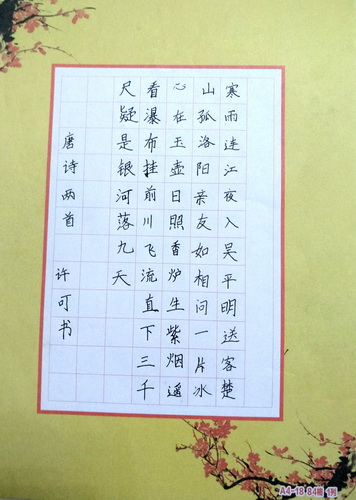 寒雨连江夜入吴平明送客楚
山孤洛阳亲友如相问一片冰
心在玉壶日照香炉生紫烟遥
看瀑布挂前川飞流直下三千
尺疑是银河落九天
唐诗两首 许可书
A4-18 84格 1例